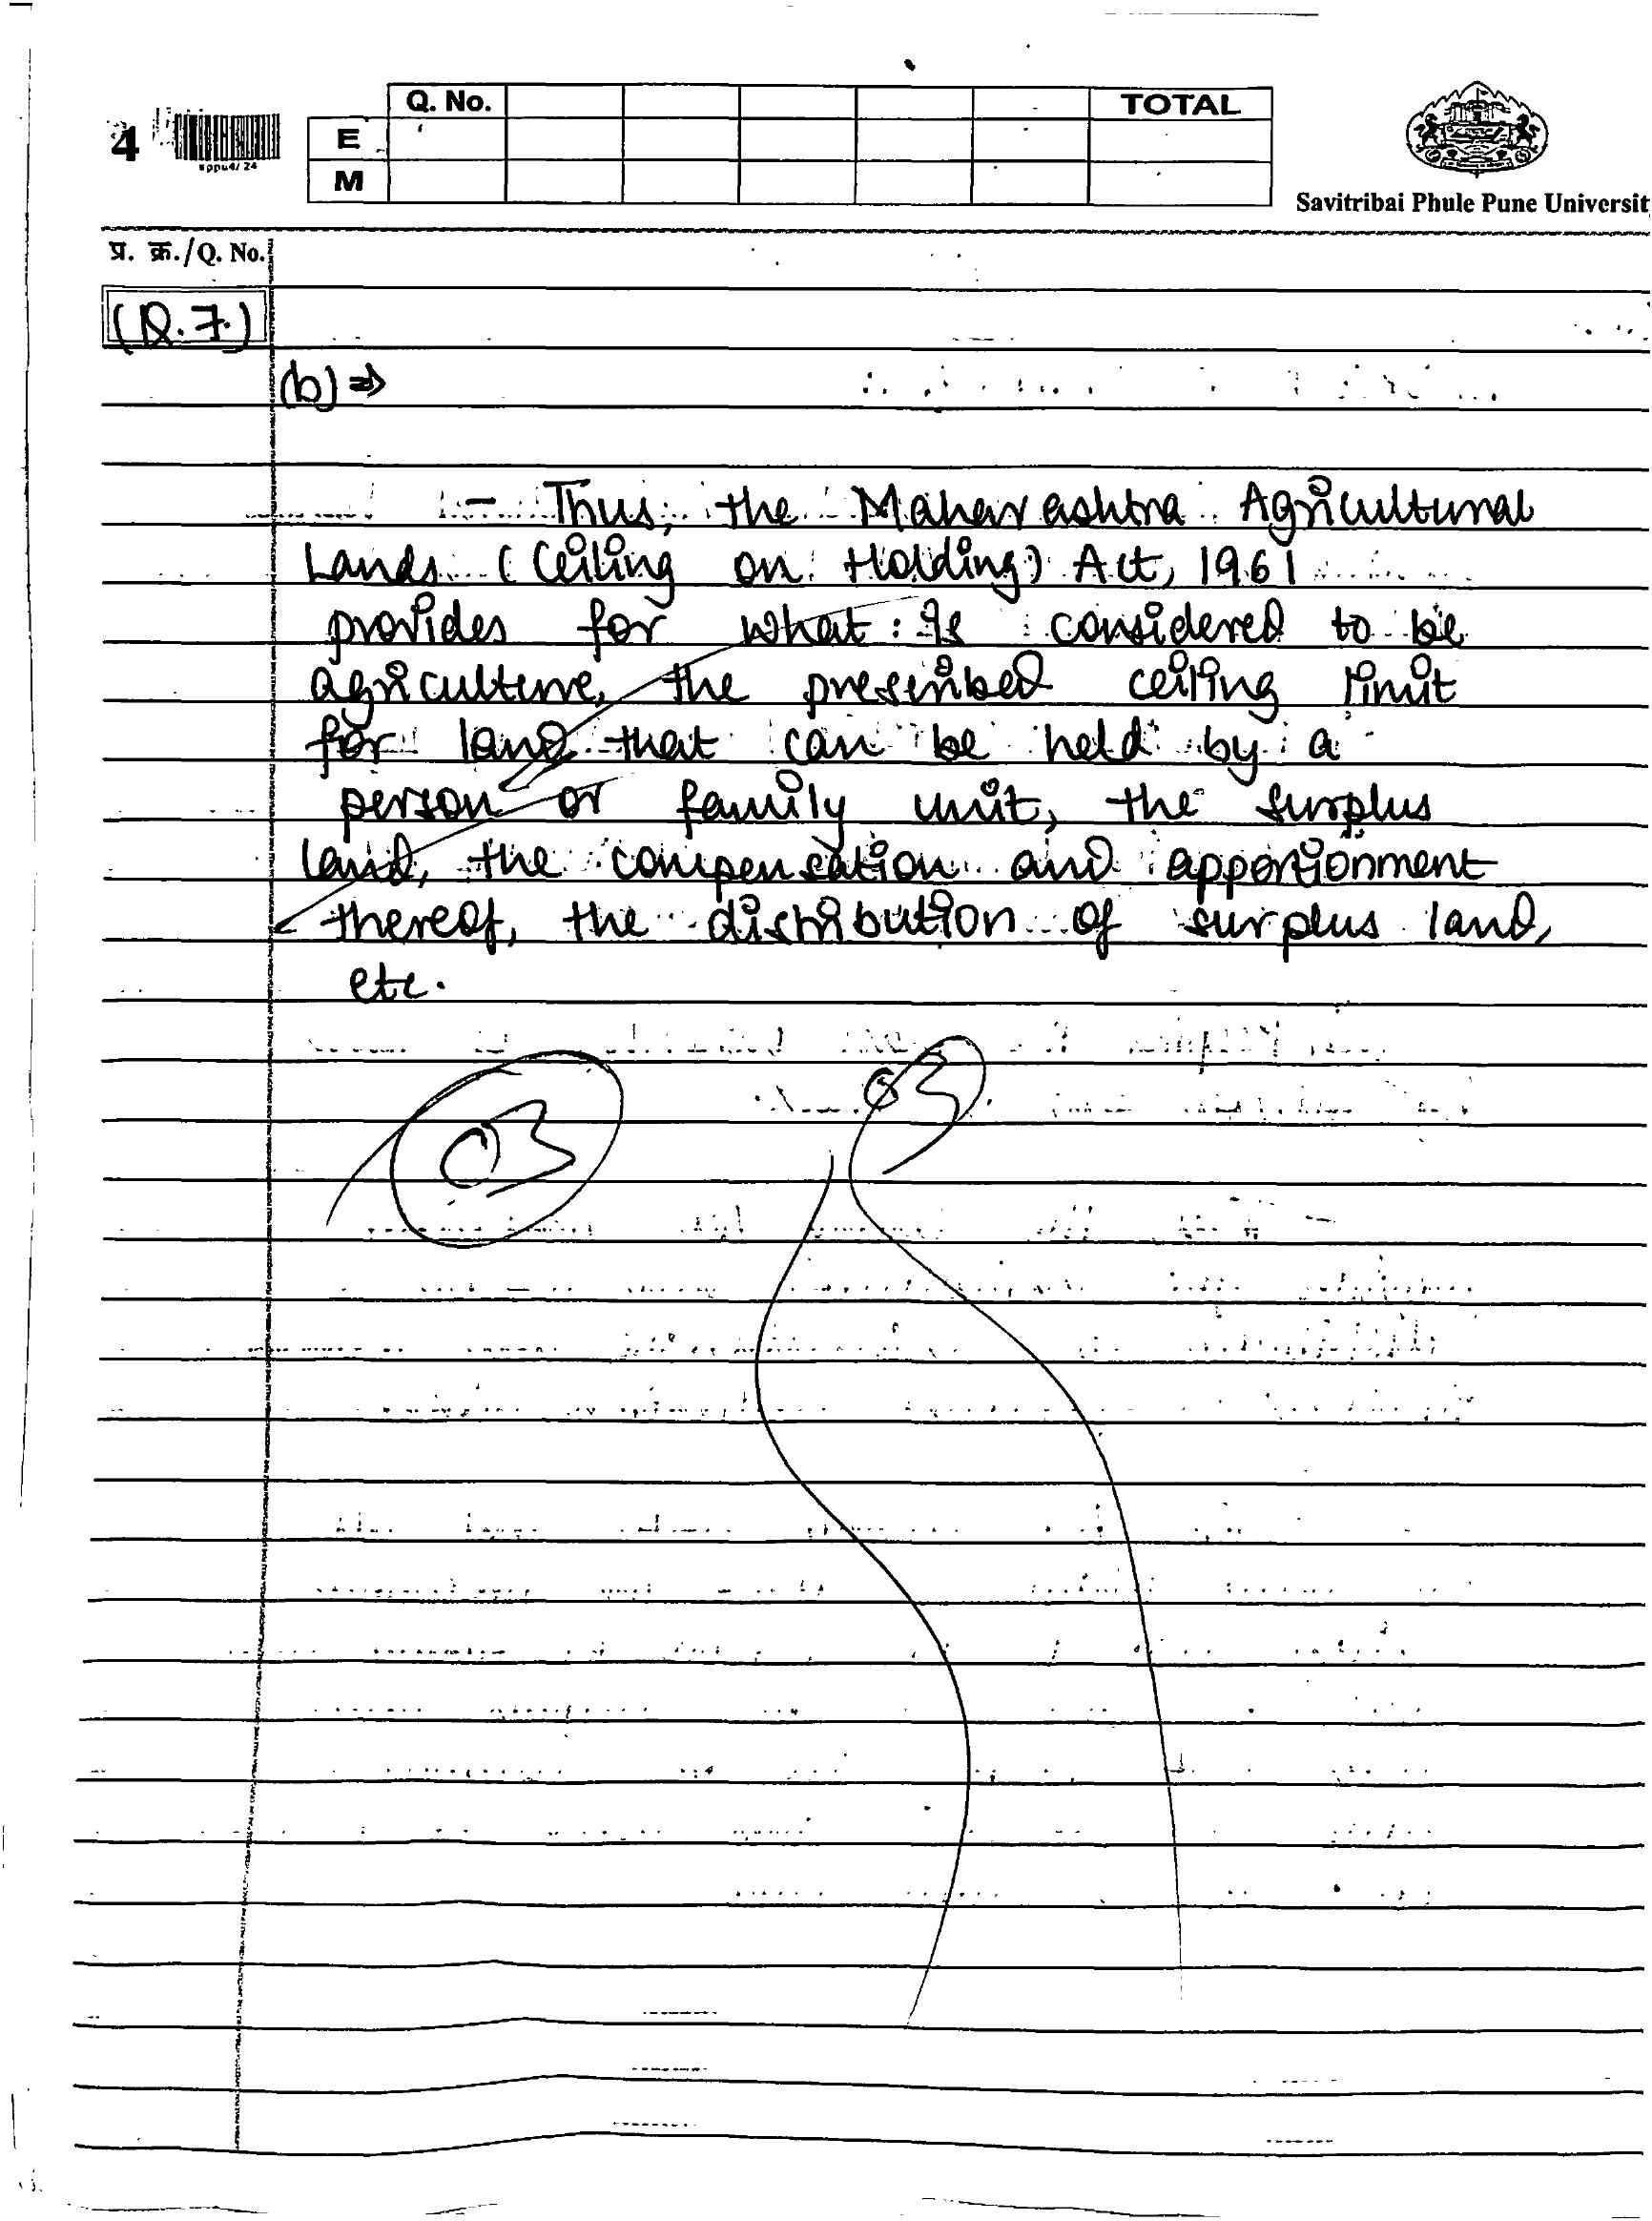 4
sppu4/ 24
Q. No.
TOTAL
E
M
Savitribai Phule Pune Universit
प्र. क्र./Q. No.
(Q.7.)
(b) ⇒
- Thus, the Maharashtra Agricultural
Lands (Ceiling on Holding) Act, 1961
provides for what is considered to be
agriculture, the prescribed ceiling limit
for land that can be held by a
person or family unit, the surplus
land, the compensation and apportionment
thereof, the distribution of surplus land,
etc.
03
03